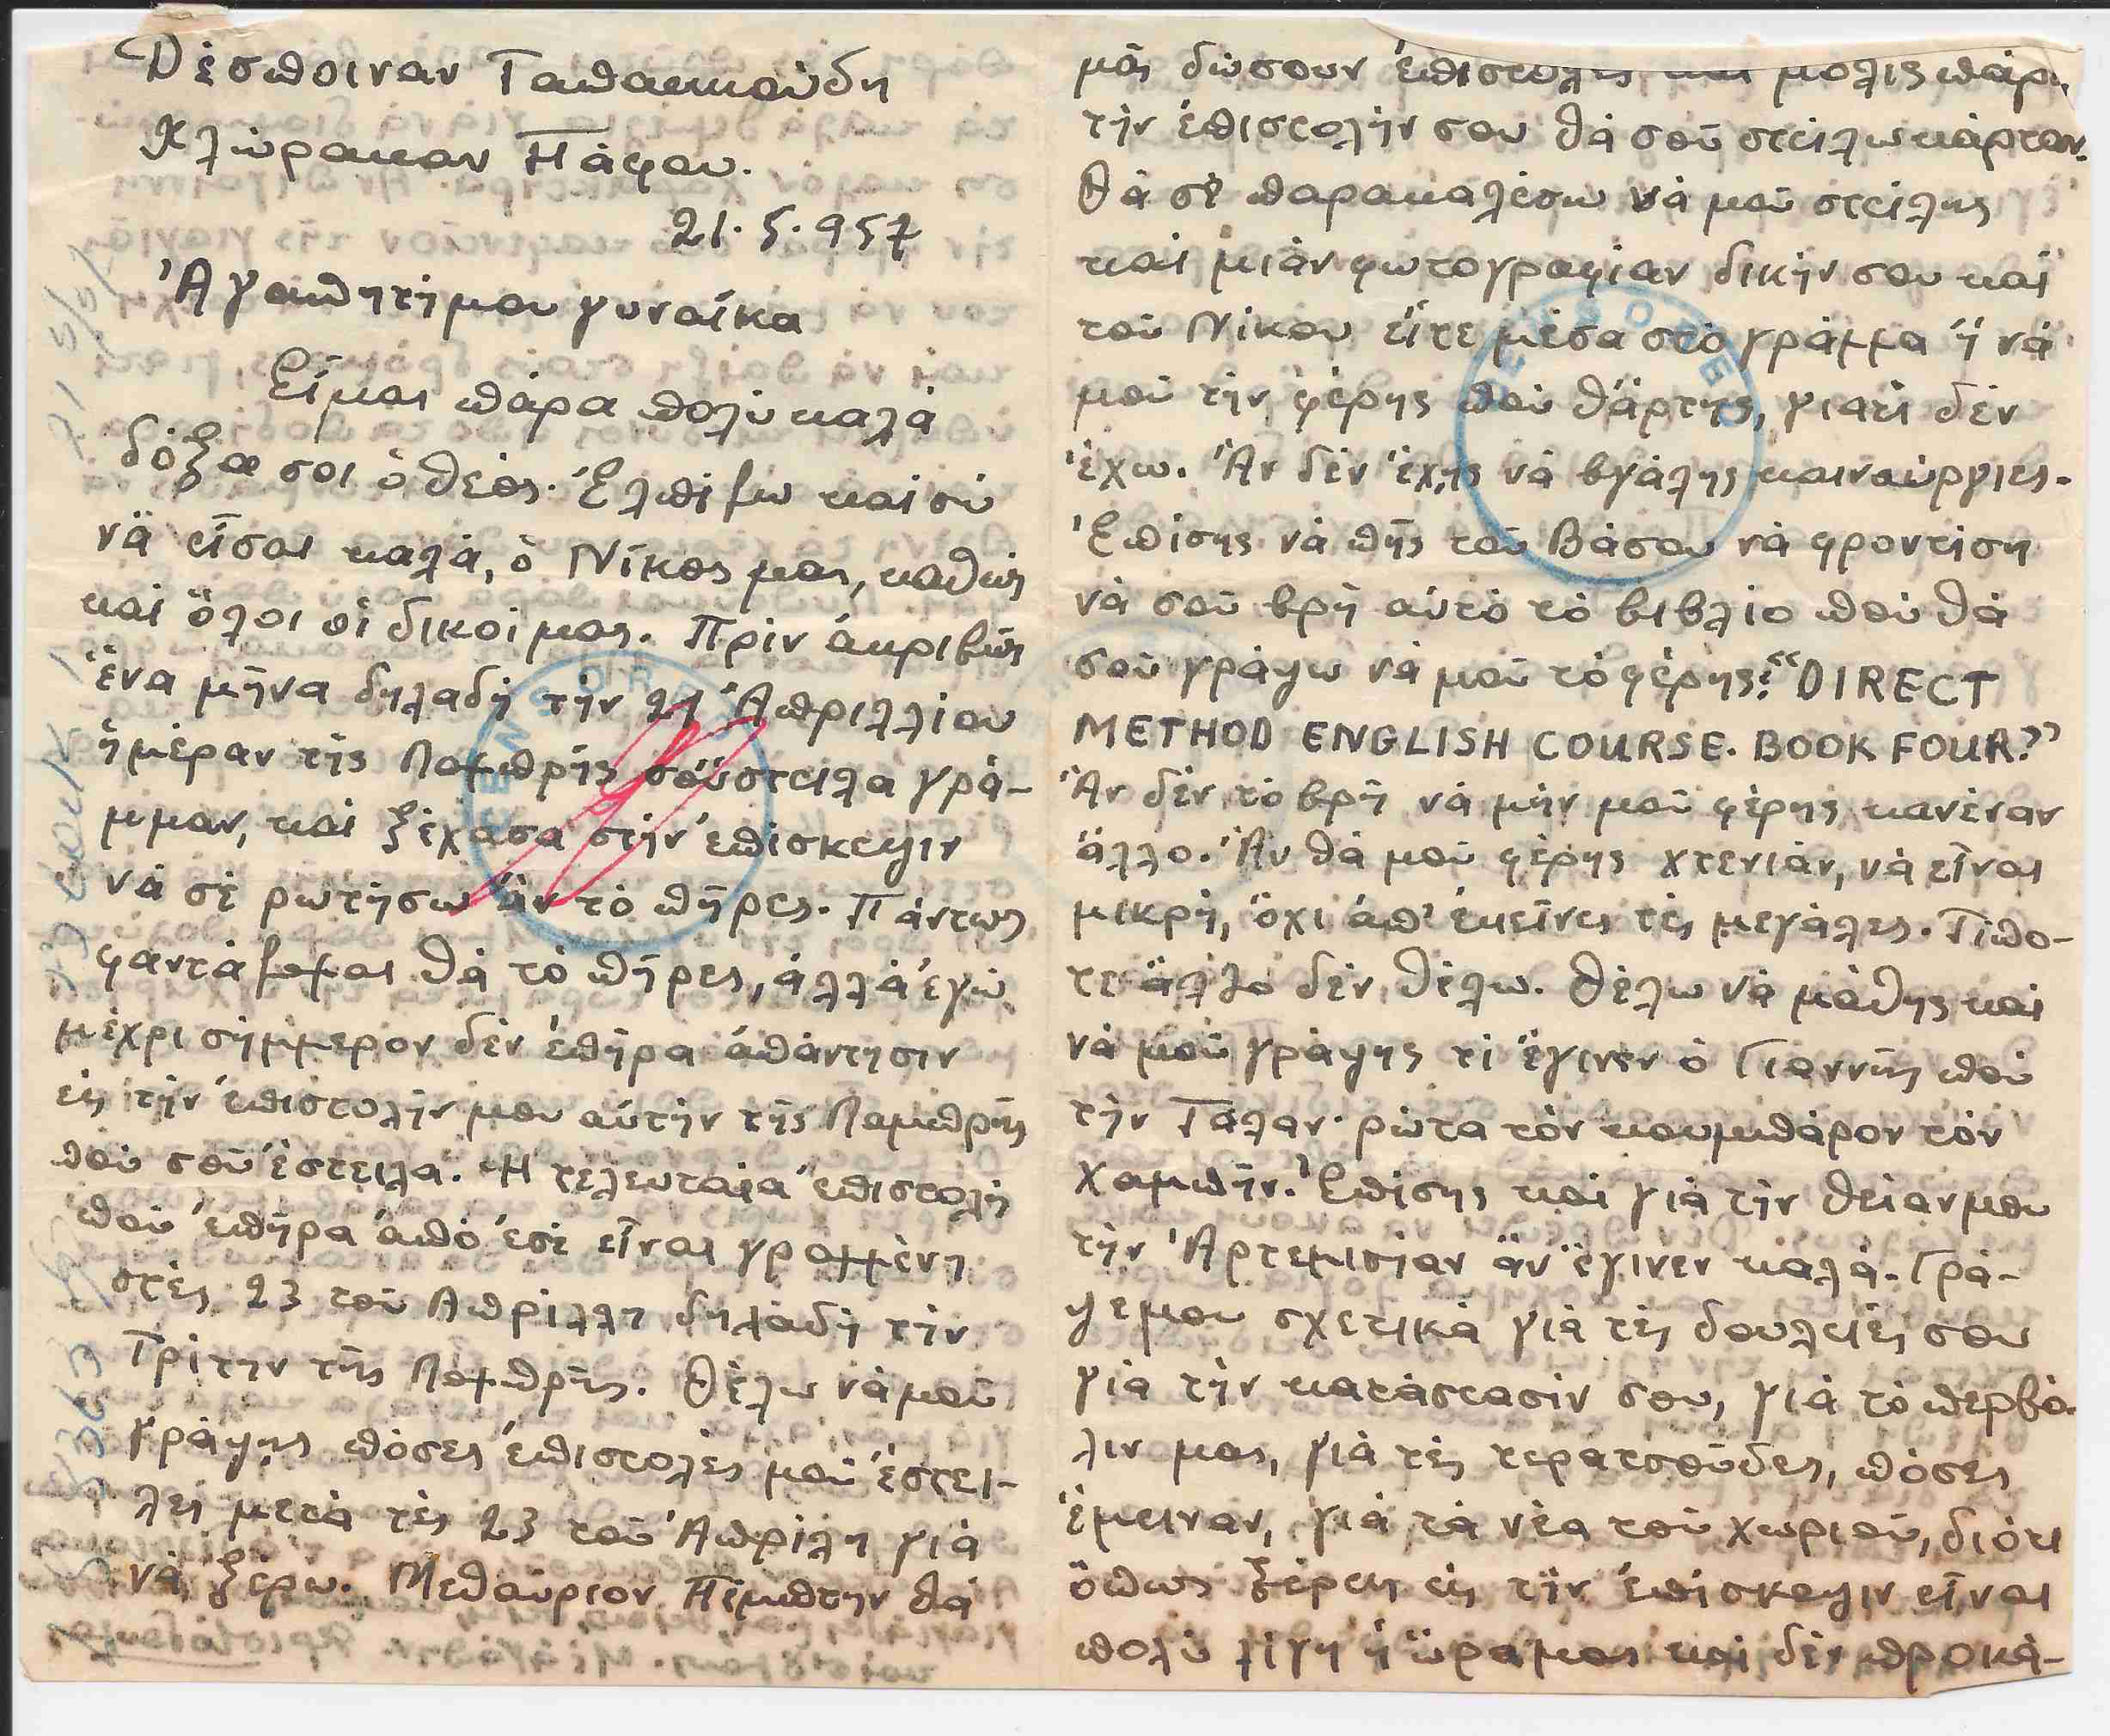 Δέσποιναν Ταπακούδη
Χλώρακαν Πάφου.
21.5.957
Ἀγαπητή μου γυναίκα
Εἶμαι πάρα πολύ καλά
δόξα σοι ὁ θεός. Ἐλπίζω καί σύ
νά εἶσαι καλά, ὁ Νίκος μας, καθώς
καί ὅλοι οἱ δικοί μας. Πρίν ἀκριβῶς
ἕνα μῆνα δηλαδή τήν 21 Ἀπριλλίου
ἡμέραν τῆς Λαμπρῆς σοὔστειλα γρά-
μμαν, καί ξέχασα στήν ἐπίσκεψιν
νά σέ ρωτήσω ἄν τό πῆρες. Πάντως
φαντάζομαι θά τό πῆρες, ἀλλά ἐγώ
μέχρι σήμμερον δέν ἐπῆρα ἀπάντησιν
εἰς τήν ἐπιστολήν μου αὐτήν τῆς Λαμπρῆς
πού σοῦ ἔστειλα. Ἡ τελευταία ἐπιστολή
πού ἐπῆρα ἀπό ἐσέ εἶναι γραμμένη
στές 23 τοῦ Ἀπρίλλη δηλαδή τήν
Τρίτην τῆς Λαμπρῆς. Θέλω νά μοῦ
γράψῃς πόσες ἐπιστολές μοῦ ἔστει-
λες μετά τές 23 τοῦ Ἀπρίλη γιά
νά ξέρω. Μεθαύριον Πέμπτην θά
μᾶς δώσουν ἐπιστολές καί μόλις πάρω
τήν ἐπιστολήν σου θά σοῦ στείλω κάρταν.
Θά σέ παρακαλέσω νά μοῦ στείλης
καί μιάν φωτογραφίαν δικήν σου καί
τοῦ Νίκου εἴτε μέσα στό γράμμα ἤ νά
μοῦ τήν φέρης πού θάρτης, γιατί δέν
ἔχω. Ἄν δέν ἔχῃς νά βγάλης καινούργιες.
Ἐπίσης νά πῆς τοῦ Βάσου νά φροντίση
νά σοῦ βρῆ αὐτό τό βιβλίο πού θά
σοῦ γράψω νά μοῦ τό φέρης: "DIRECT
METHOD ENGLISH COURSE. BOOK FOUR?"
Ἄν δέν τό βρῆ νά μήν μοῦ φέρης κανέναν
ἄλλο. Ἄν θά μοῦ φέρης χτενιάν, νά εἶναι
μικρή, ὄχι ἀπ' ἐκεῖνες τές μεγάλες. Τίπο-
τε ἄλλο δέν θέλω. Θέλω νά μάθης καί
νά μοῦ γράψης τί ἔγινεν ὁ Γιαννής πού
τήν Τάλαν· ρώτα τόν κουμπάρον τόν
Χαμπῆν. Ἐπίσης καί γιά τήν θείαν μου
τήν Ἀρτεμισίαν ἄν ἔγινεν καλά. Γρά-
ψε μου σχετικά γιά τές δουλειές σου
γιά τήν κατάστασίν σου, γιά τό περβό-
λιν μας, γιά τές τερατσοῦδες, πόσες
ἔμειναν, γιά τά νέα τοῦ χωριοῦ, διότι
ὅπως ξέρεις εἰς τήν ἐπίσκεψιν εἶναι
πολύ λίγη ἡ ὥρα μας καί δέν προκά-